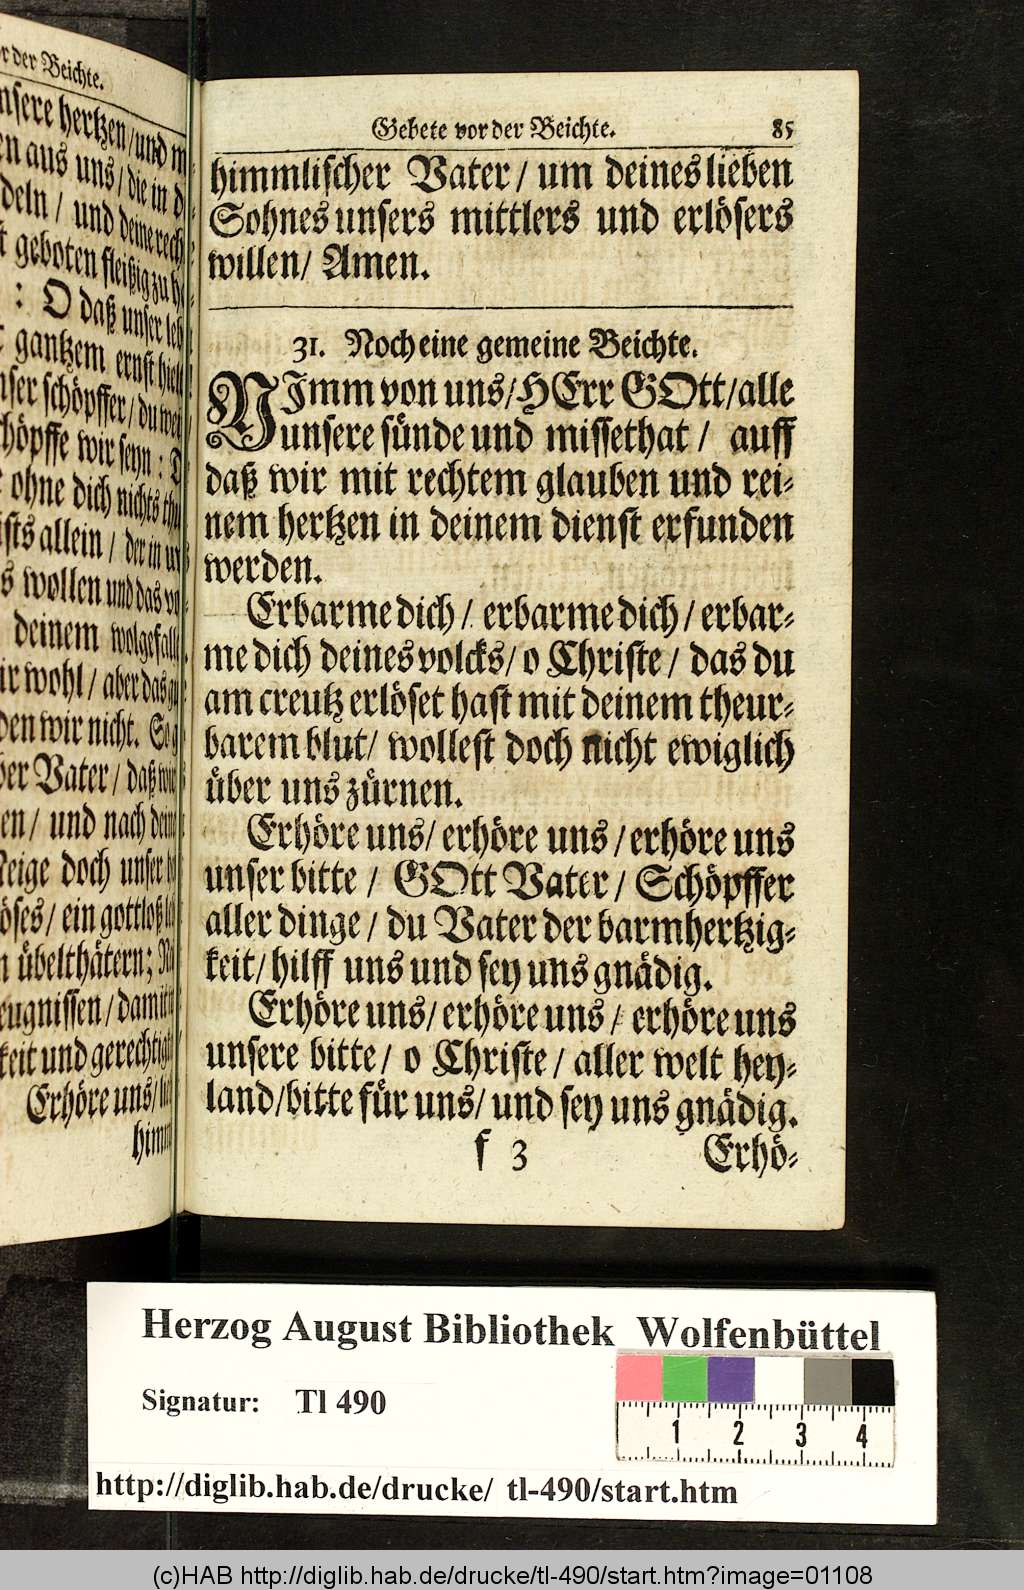 der Beichte.
unsere hertzen/und
aus uns/die in
und deine
geboten fleißig zu
: O daß unser
gantzem ernst
schöpffer/du
wir seyn:
ohne dich nichts
allein/der in
wollen und das
deinem
wohl/aber das
wir nicht.
Vater/daß wir
und nach
doch unser
ein gottloß
übelthätern;
damit
und
Erhöre uns/
Gebete vor der Beichte. 85
himmlischer Vater/ um deines lieben
Sohnes unsers mittlers und erlösers
willen/ Amen.
31. Noch eine gemeine Beichte.
NImm von uns/HErr GOtt/alle
unsere sünde und missethat/ auff
daß wir mit rechtem glauben und rei-
nem hertzen in deinem dienst erfunden
werden.
Erbarme dich/ erbarme dich/ erbar-
me dich deines volcks/ o Christe/ das du
am creutz erlöset hast mit deinem theur-
barem blut/ wollest doch nicht ewiglich
über uns zürnen.
Erhöre uns/ erhöre uns/ erhöre uns
unser bitte/ GOtt Vater/ Schöpffer
aller dinge/ du Vater der barmhertzig-
keit/ hilff uns und sey uns gnädig.
Erhöre uns/ erhöre uns/ erhöre uns
unsere bitte/ o Christe/ aller welt hey-
land/bitte für uns/ und sey uns gnädig.
f 3 Erhö-
Herzog August Bibliothek Wolfenbüttel
Signatur: Tl 490
1 2 3 4
http://diglib.hab.de/drucke/ tl-490/start.htm
(c)HAB http://diglib.hab.de/drucke/tl-490/start.htm?image=01108